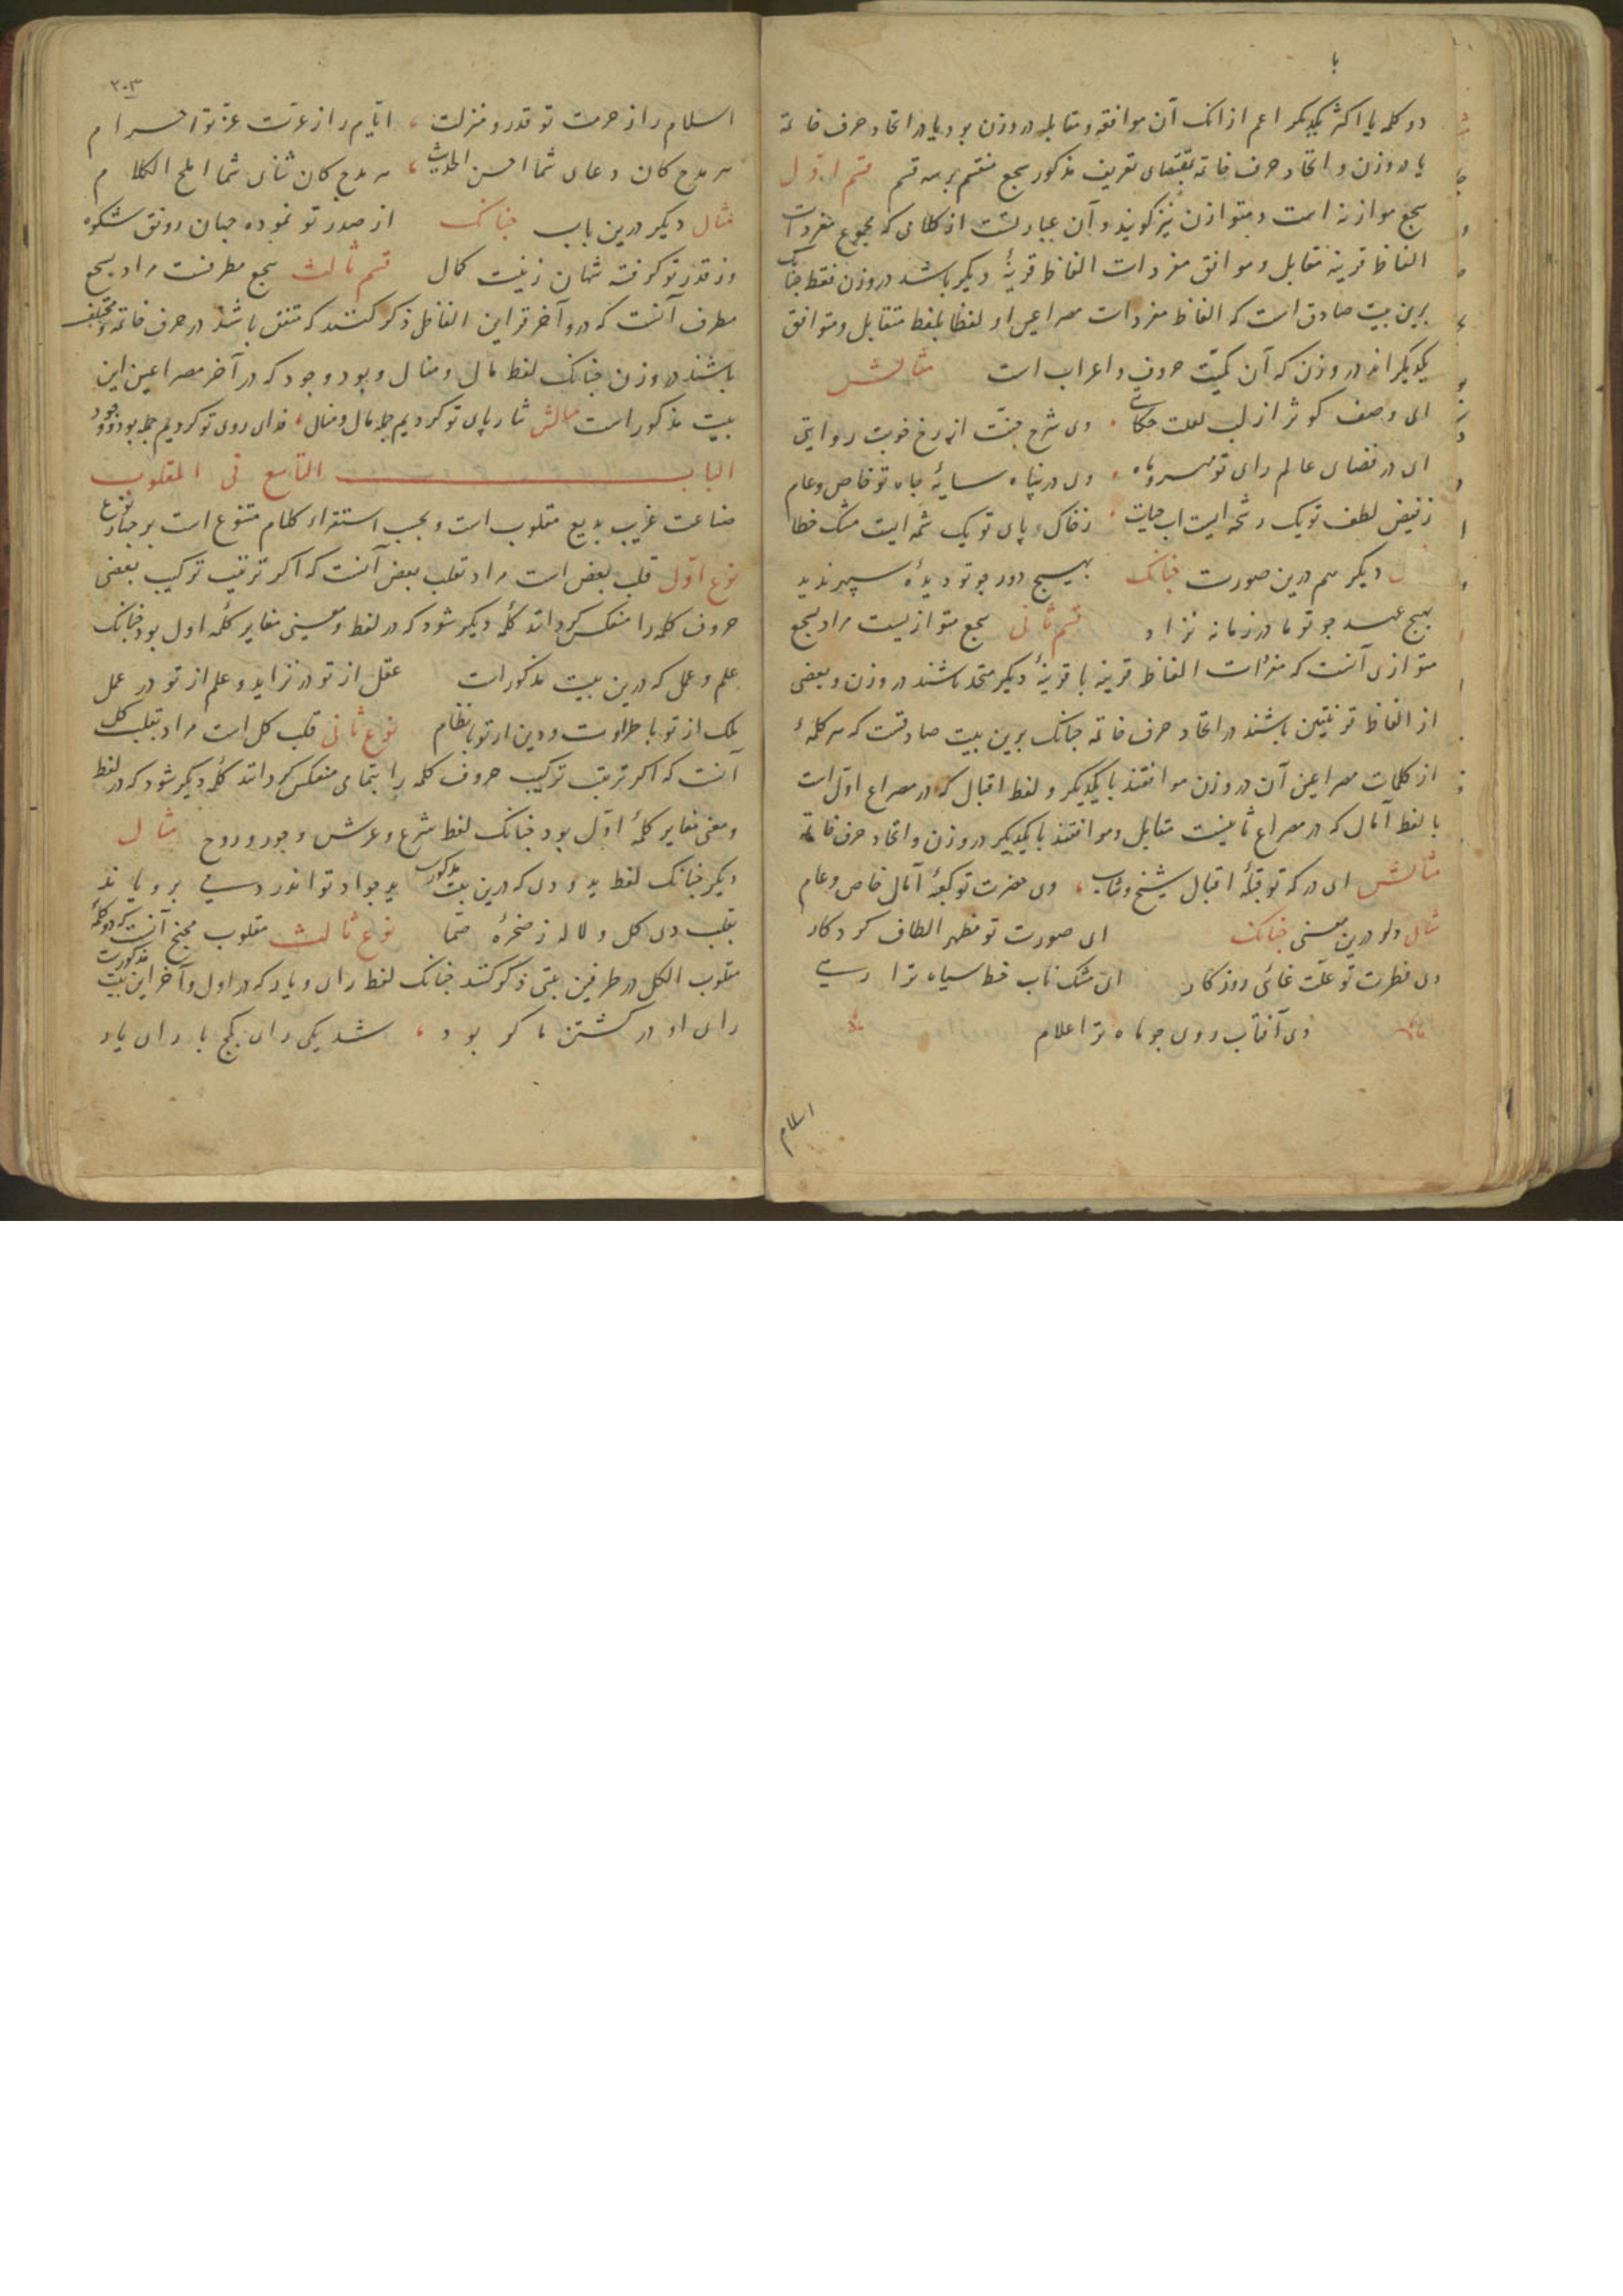 دو کلمه یا اکثر یکدیگر اعم ازانک آن موافقه و مقابله در وزن بود یا در اتحاد حرف خاتمه
یا در وزن و اتحاد حرف خاتمه بمقتضای تعریف مذکور سجع منقسم برسه قسم قسم اول
سجع موازنه است و متوازن نیز کویند و آن عبارتست از کلامی که مجموع مفردات
الفاظ قرینه مقابل و موافق مفردات الفاظ قرینهٔ دیکر باشد در وزن فقط چنانک
برین بیت صادق است که الفاظ مفردات مصراعین او لفظا بلفظ متقابل و متوافق
یکدیکراند در وزن که آن کمیّت حروف و اعراب است مثالش
ای وصف کوثر از لب لعلت حکایتی وی شرح جنّت از رخ خوبت روایتی
ای در فضای عالم رای تو مهر و ماه وی در پناه سایهٔ جاه تو خاص و عام
ز فیض لطف تو یک رشحه ایست اب حیات ز خاک پای تو یک شمه ایست مشک خطا
دیکر هم درین صورت چنانک بهیچ دور چو تو دیدهٔ سپهر ندید
بهیچ عهد چو تو مادر زمانه نزاد قسم ثانی سجع متوازیست مراد بسجع
متوازی آنست که مفردات الفاظ قرینه با قرینهٔ دیکر متحد باشند در وزن و بعضی
از الفاظ قرینتین باشند در اتحاد حرف خاتمه چنانک برین بیت صادقست که هر کلمهٔ
از کلمات مصراعین آن در وزن موافقند با یکدیکر و لفظ اقبال که در مصراع اوّل است
با لفظ آمال که در مصراع ثانیست مقابل و موافقند با یکدیکر در وزن و اتحاد حرف خاتمه
مثالش ای درکه تو قبلهٔ اقبال شیخ و شاب وی حضرت تو کعبهٔ آمال خاص و عام
مثال درین معنی چنانک ای صورت تو مظهر الطاف کردکار
وی فطرت تو علّت غائی روزکار ای مشک ناب خط سیاه ترا رهی
وی آفتاب روی چو ماه ترا غلام
اسلام
۲۰۳
اسلام را ز حرمت تو قدر و منزلت ایّام را ز عزّت عزّ تو احترام
هر مدح کان دعای شما احسن الحدیث هر مدح کان ثنای شما املح الکلام
مثال دیکر درین باب چنانک از صدر تو نموده جهان رونق شکوه
وز قدر تو کرفته شهان زینت کمال قسم ثالث سجع مطرفست مراد بسجع
مطرف آنست که در و آخر قراین الفاظی ذکر کنند که متفق باشند در حرف خاتمه و مختلف
باشند در وزن چنانک لفظ مال و منال و بود و وجود که در آخر مصراعین این
بیت مذکور است مثالش نثار پای تو کردیم جمله مال و منال فدای روی تو کردیم جمله بود و وجود
الباب التاسع فی المقلوب
صناعت غریب بدیع مقلوب است و بحسب استقراء کلام متنوع است بر چهار نوع
نوع اوّل قلب بعض است مراد بقلب بعض آنست که اکر ترتیب ترکیب بعضی
حروف کلمه را منعکس کردانند کلمهٔ دیکر شود که در لفظ و معنی مغایر کلمهٔ اول بود چنانک
علم و عمل که درین بیت مذکورات عقل از تو در تزاید و علم از تو در عمل
ملک از تو با طراوت و دین از تو با نظام نوع ثانی قلب کل است مراد بقلب کل
آنست که اکر ترتیب ترکیب حروف کلمه را بتمامی منعکس کردانند کلمهٔ دیکر شود که در لفظ
و معنی مغایر کلمهٔ اوّل بود چنانک لفظ شرع و عرش و حور و روح مثال
دیکر چنانک لفظ ید و دی که درین بیت مذکورست ید جواد تو اندر دی برویاند
بقلب دی کل و لاله ز صخرهٔ صمّا نوع ثالث مقلوب مجنح آنست که دو کلمهٔ
مقلوب الکل در طرفین بیتی ذکر کنند چنانک لفظ رای و یار که در اول و آخر این بیت مذکورست
رای او در کشتن ما کر بود شد یکی رای کج با رای یار